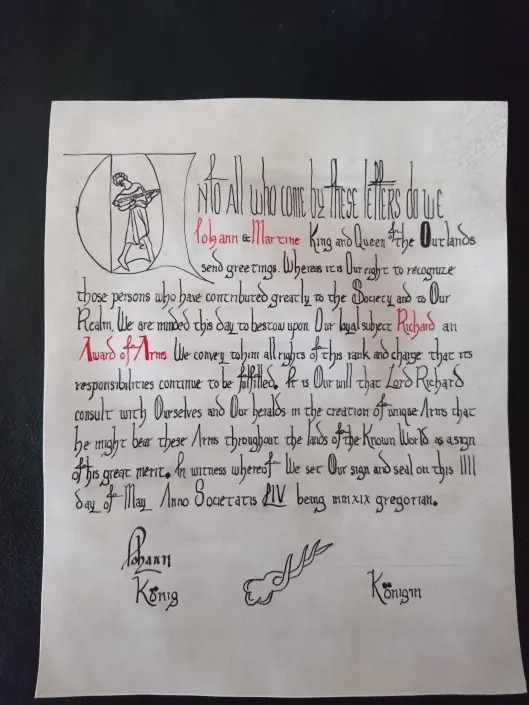 Unto All who come by these letters do we
Iohann & Martine King and Queen of the Outlands
send greetings. Whereas it is Our right to recognize
those persons who have contributed greatly to the Society and to Our
Realm, We are minded this day to bestow upon Our loyal subject Richard an
Award of Arms We convey to him all rights of this rank and charge that its
responsibilities continue to be fulfilled. It is Our will that Lord Richard
consult with Ourselves and Our heralds in the creation of unique Arms that
he might bear these Arms throughout the lands of the Known World as a sign
of his great merit. In witness whereof We set Our sign and seal on this IIII
day of May Anno Societatis LIV being mmxix gregorian.
Iohann
König
Königin